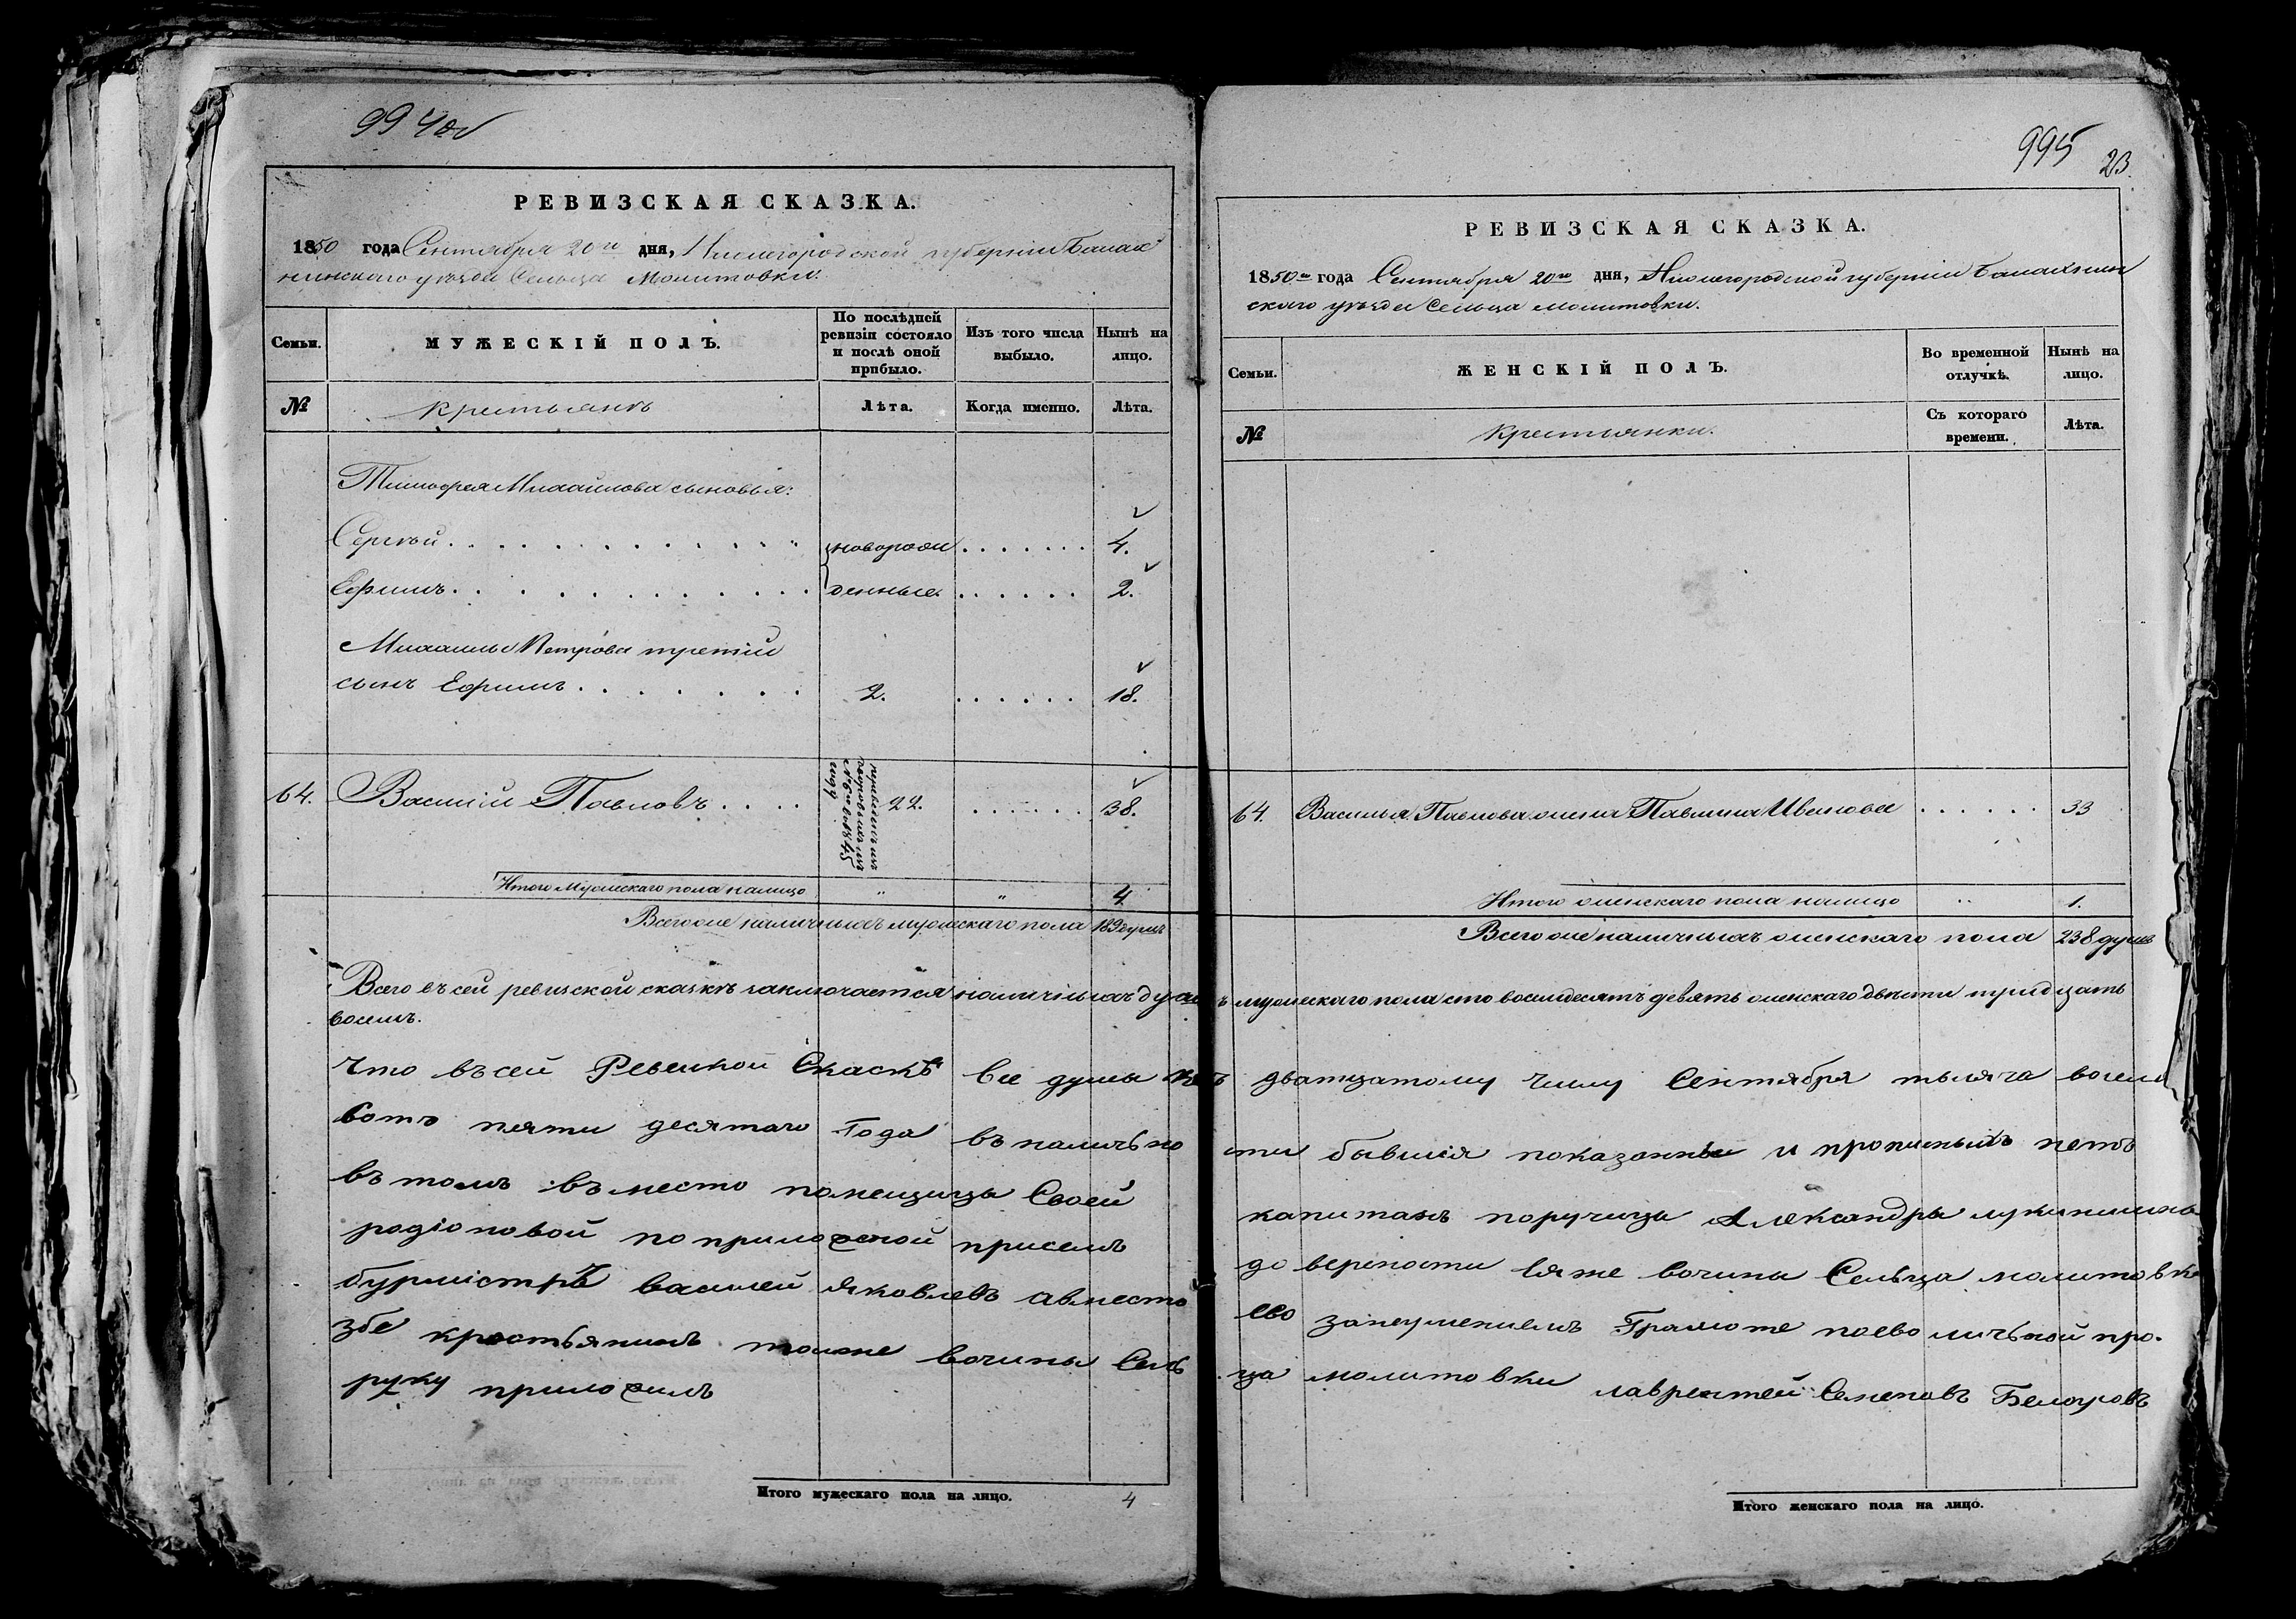 994 об
РЕВИЗСКАЯ СКАЗКА.
1850 года Сентября 20го дня, Нижегородской губерніи Балах
нинскаго уѣзда Сельца Молитовки.
Семьи.
МУЖЕСКІЙ ПОЛЪ.
По послѣдней ревизіи состояло и послѣ оной прибыло.
Изъ того числа выбыло.
Нынѣ на лицо.
№
крестьянъ
Лѣта.
Когда именно.
Лѣта.
Тимофея Михайлова сыновья:
Сергѣй . . . . . . . . . . . . новорож . . . . . . . 4.
Ефимъ . . . . . . . . . . . . денные . . . . . . 2.
Михаилы Петрова третій
сынъ Ефимъ . . . . . . . 2. . . . . . . 18.
64. Василій Павловъ . . . . 22. . . . . . . 38.
Итого Мужескаго пола налицо " " 4
Всего же наличныхъ мужескаго пола 189 душъ
995
23.
РЕВИЗСКАЯ СКАЗКА.
1850го года Сентября 20го дня, Нижегородской губерніи Балахнин
скаго уѣзда Сельца молитовки.
Семьи.
ЖЕНСКІЙ ПОЛЪ.
Во временной отлучкѣ.
Нынѣ на лицо.
№
Крестьянки.
Съ котораго времени.
Лѣта.
64. Василья Павлова жена Павлина Иванова . . . . . . 33
Итого женскаго пола налицо " 1.
Всего же наличныхъ женскаго пола 238 душъ
Всего въ сей ревизской сказкѣ заключается наличныхъ душъ мужескаго пола сто восемдесятъ девять женскаго двѣсти тридцать
восемь.
Что въ сей Ревиской Скаскѣ все души къ дватцатому числу Сентября тысяча восем
сотъ пяти десятаго Года въ налично сти бывшія показанны и прописныхъ нетъ
въ томъ въместо помещицы Своей капитанъ поручицы Александры лукинишны
родіоновой по приложеной присемъ до верености ея же вочины Сельца молитовки
бурмистръ василей яковлевъ авместо ево занеумениемъ Грамоте поево личьной про.
збе крестьянинъ тоиже вочины Сель ца молитовки лаврентей Семеновъ Белоуровъ
руку приложилъ
Итого мужескаго пола на лицо. 4
Итого женскаго пола на лицо.